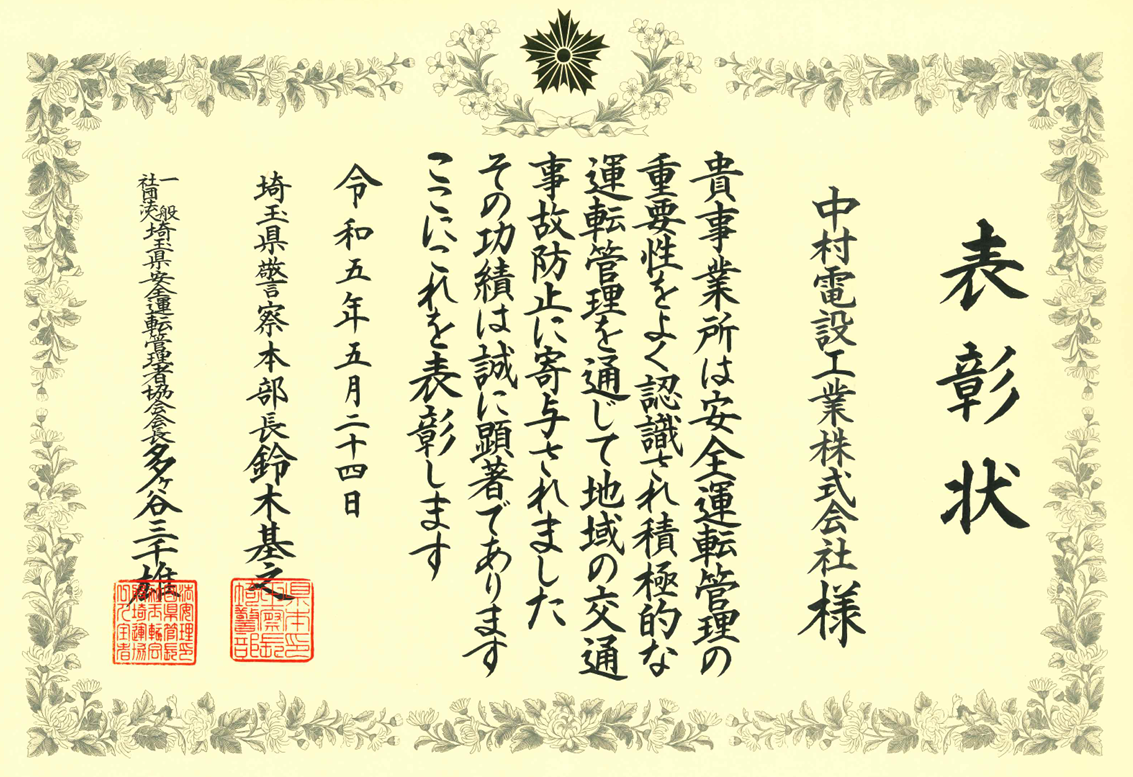 表彰状
中村電設工業株式会社様
貴事業所は安全運転管理の
重要性をよく認識され積極的な
運転管理を通じて地域の交通
事故防止に寄与されました
その功績は誠に顕著であります
ここにこれを表彰します
令和五年五月二十四日
埼玉県警察本部長鈴木基之
一般社団法人埼玉県安全運転管理者協会会長多ヶ谷三千雄